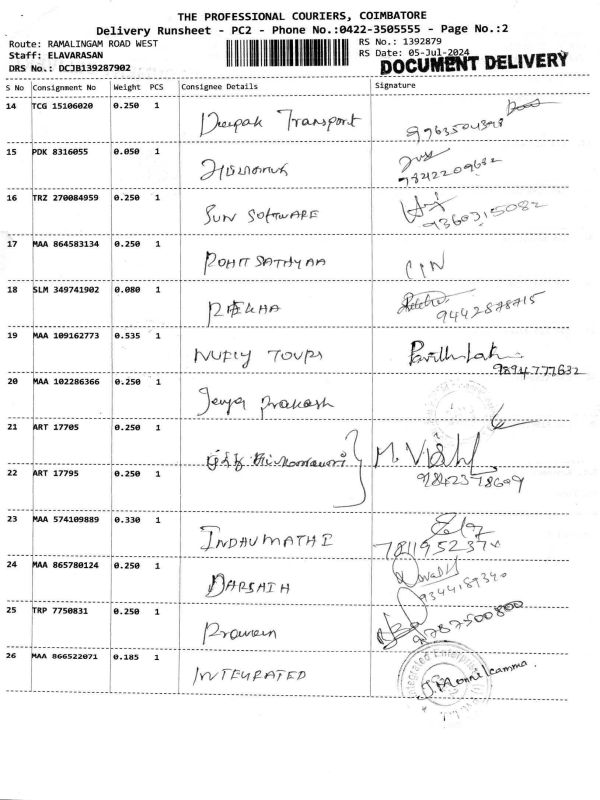 THE PROFESSIONAL COURIERS, COIMBATORE
Delivery Runsheet - PC2 - Phone No.:0422-3505555 - Page No.:2
Route: RAMALINGAM ROAD WEST RS No.: 1392879
Staff: ELAVARASAN RS Date: 05-Jul-2024
DRS No.: DCJB139287902 DOCUMENT DELIVERY
S No Consignment No Weight PCS Consignee Details Signature
14 TCG 15106020 0.250 1 Deepak Transport
15 PDK 8316055 0.050 1 9842209632
16 TRZ 270084959 0.250 1 SUN SOFTWARE 9360315082
17 MAA 864583134 0.250 1 ROHIT SATHYAA
18 SLM 349741902 0.080 1 REKHA 9442878715
19 MAA 109162773 0.535 1 NUFLY TOURS 9894777632
20 MAA 102286366 0.250 1 Jeya Prakash
21 ART 17705 0.250 1
22 ART 17795 0.250 1 9842378609
23 MAA 574109889 0.330 1 INDHUMATHI
24 MAA 865780124 0.250 1 DARSAIH 9344189340
25 TRP 7750831 0.250 1 Praveen 9787500800
26 MAA 866522071 0.185 1 INTEGRATED